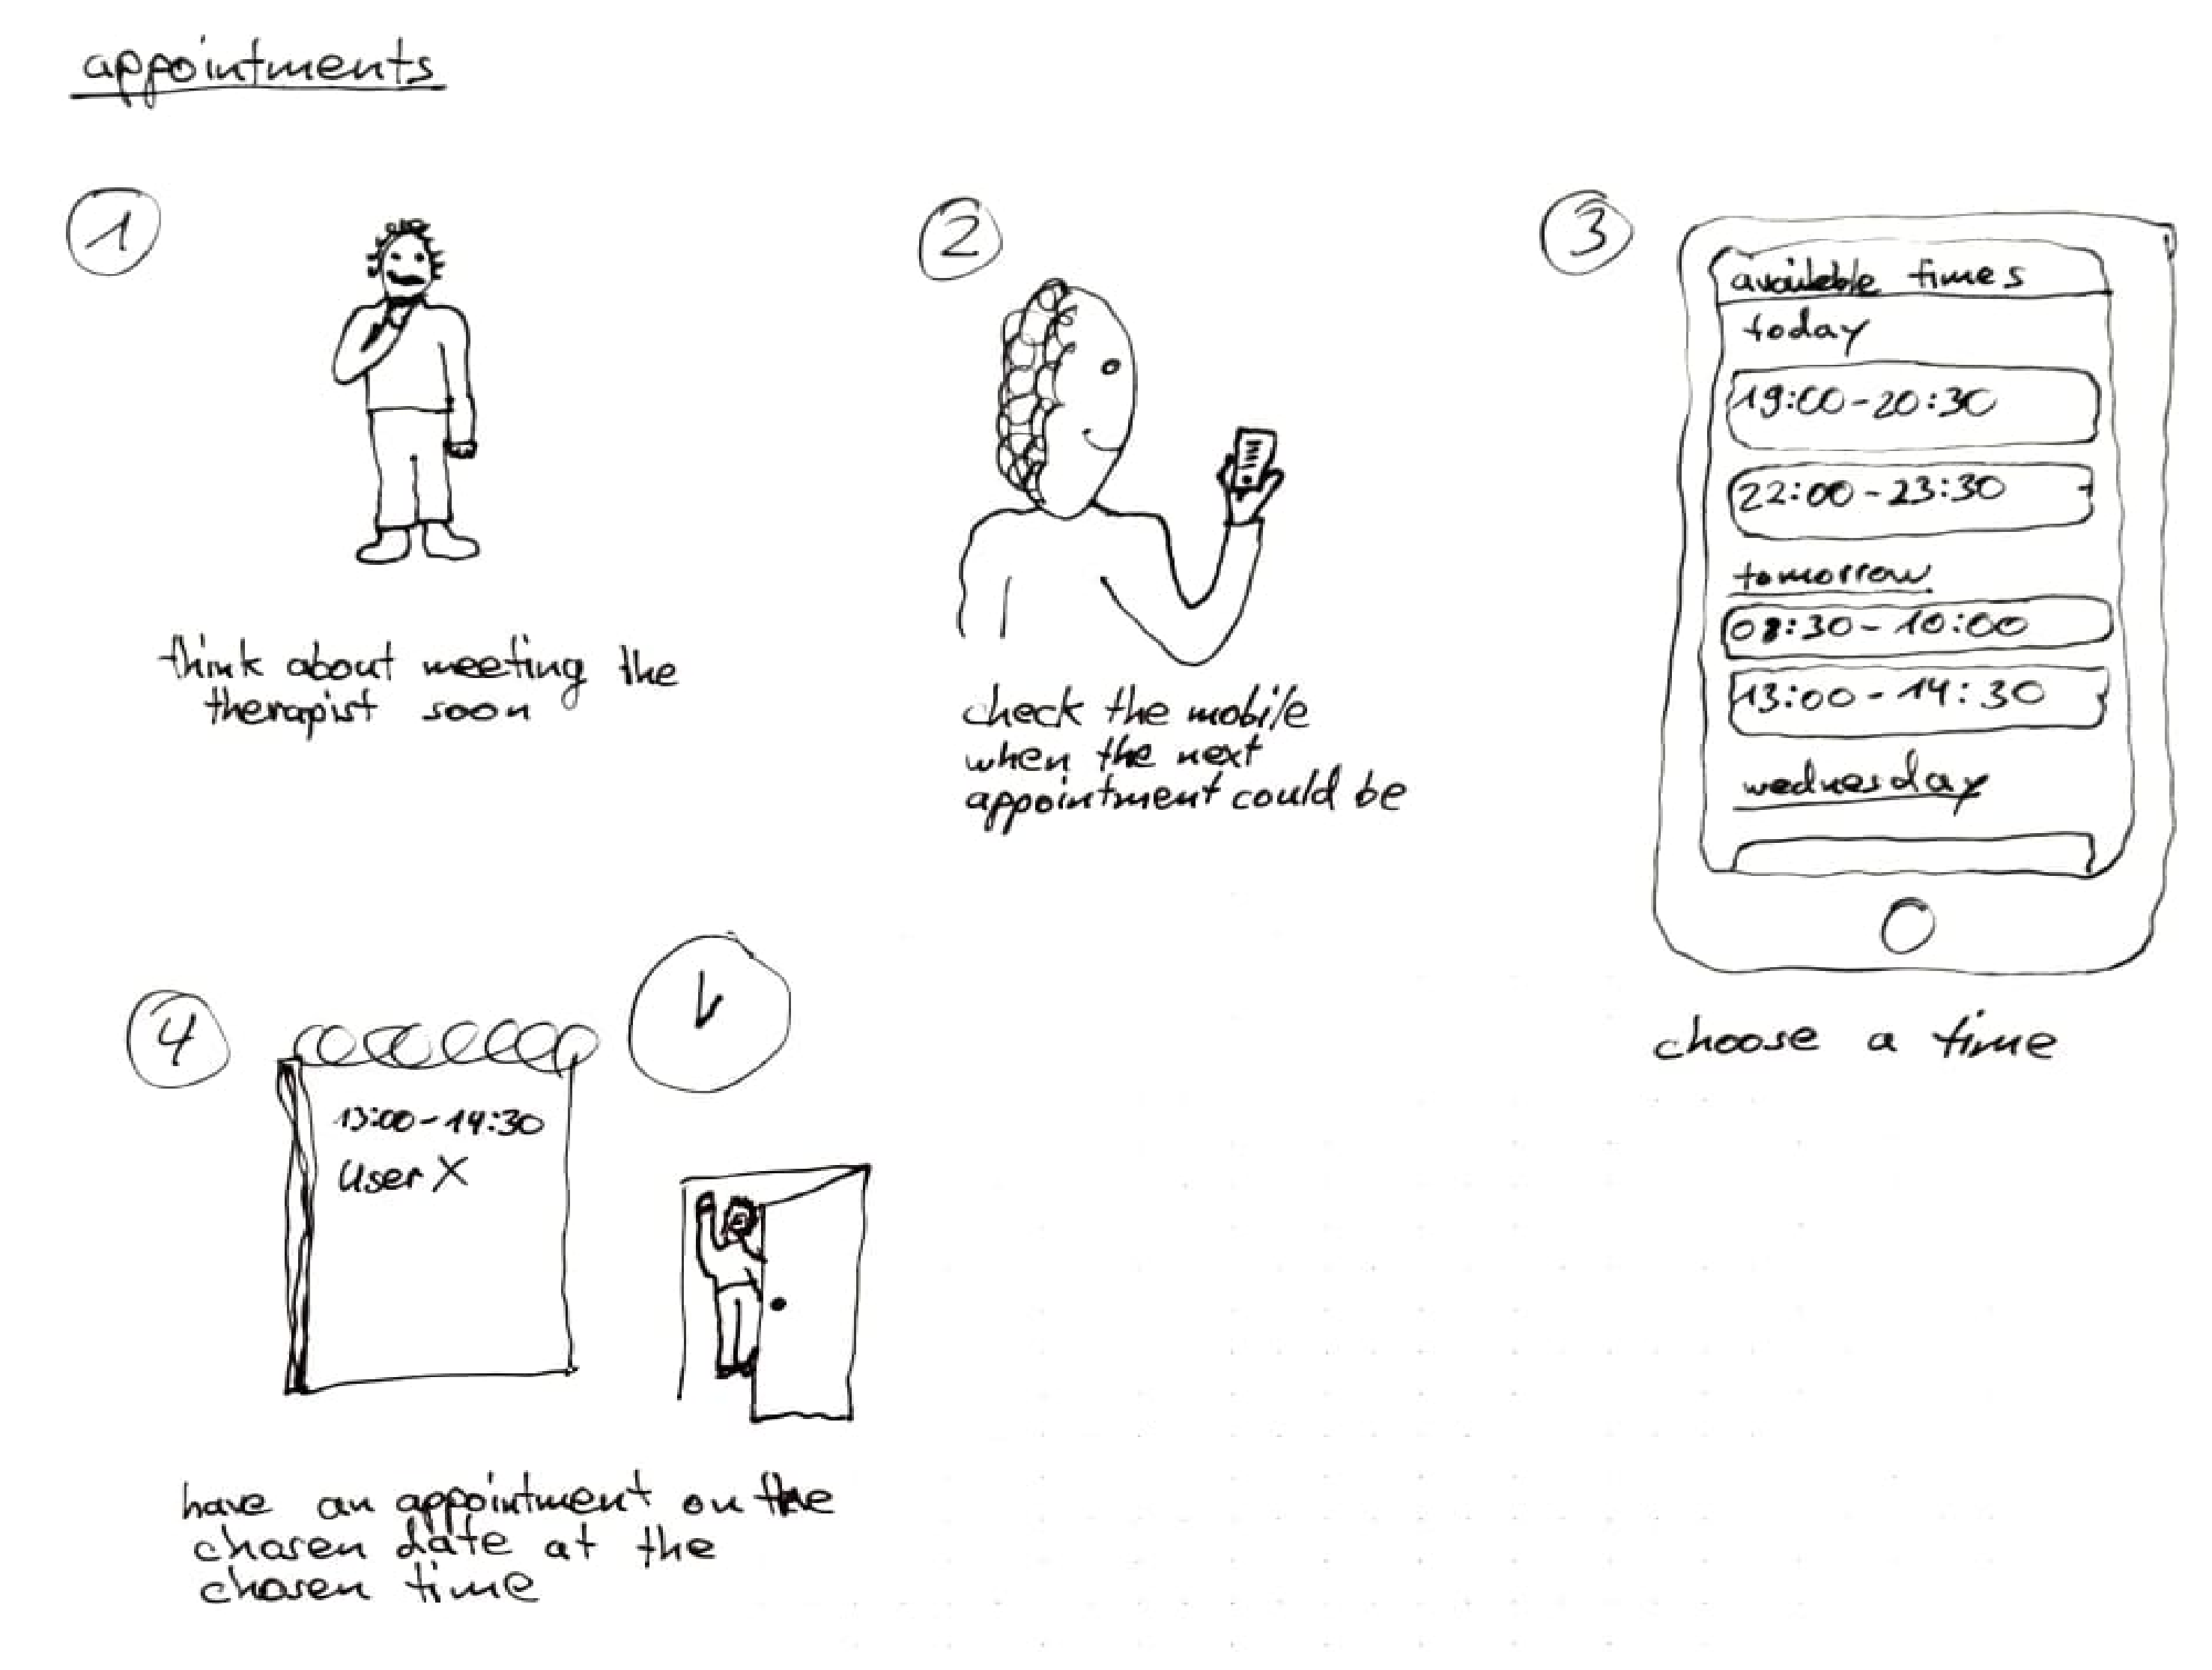 appointments
1
think about meeting the
therapist soon
2
check the mobile
when the next
appointment could be
3
available times
today
19:00-20:30
22:00-23:30
tomorrow
08:30-10:00
13:00-14:30
wednesday
choose a time
4
13:00-14:30
User X
have an appointment on the
chosen date at the
chosen time